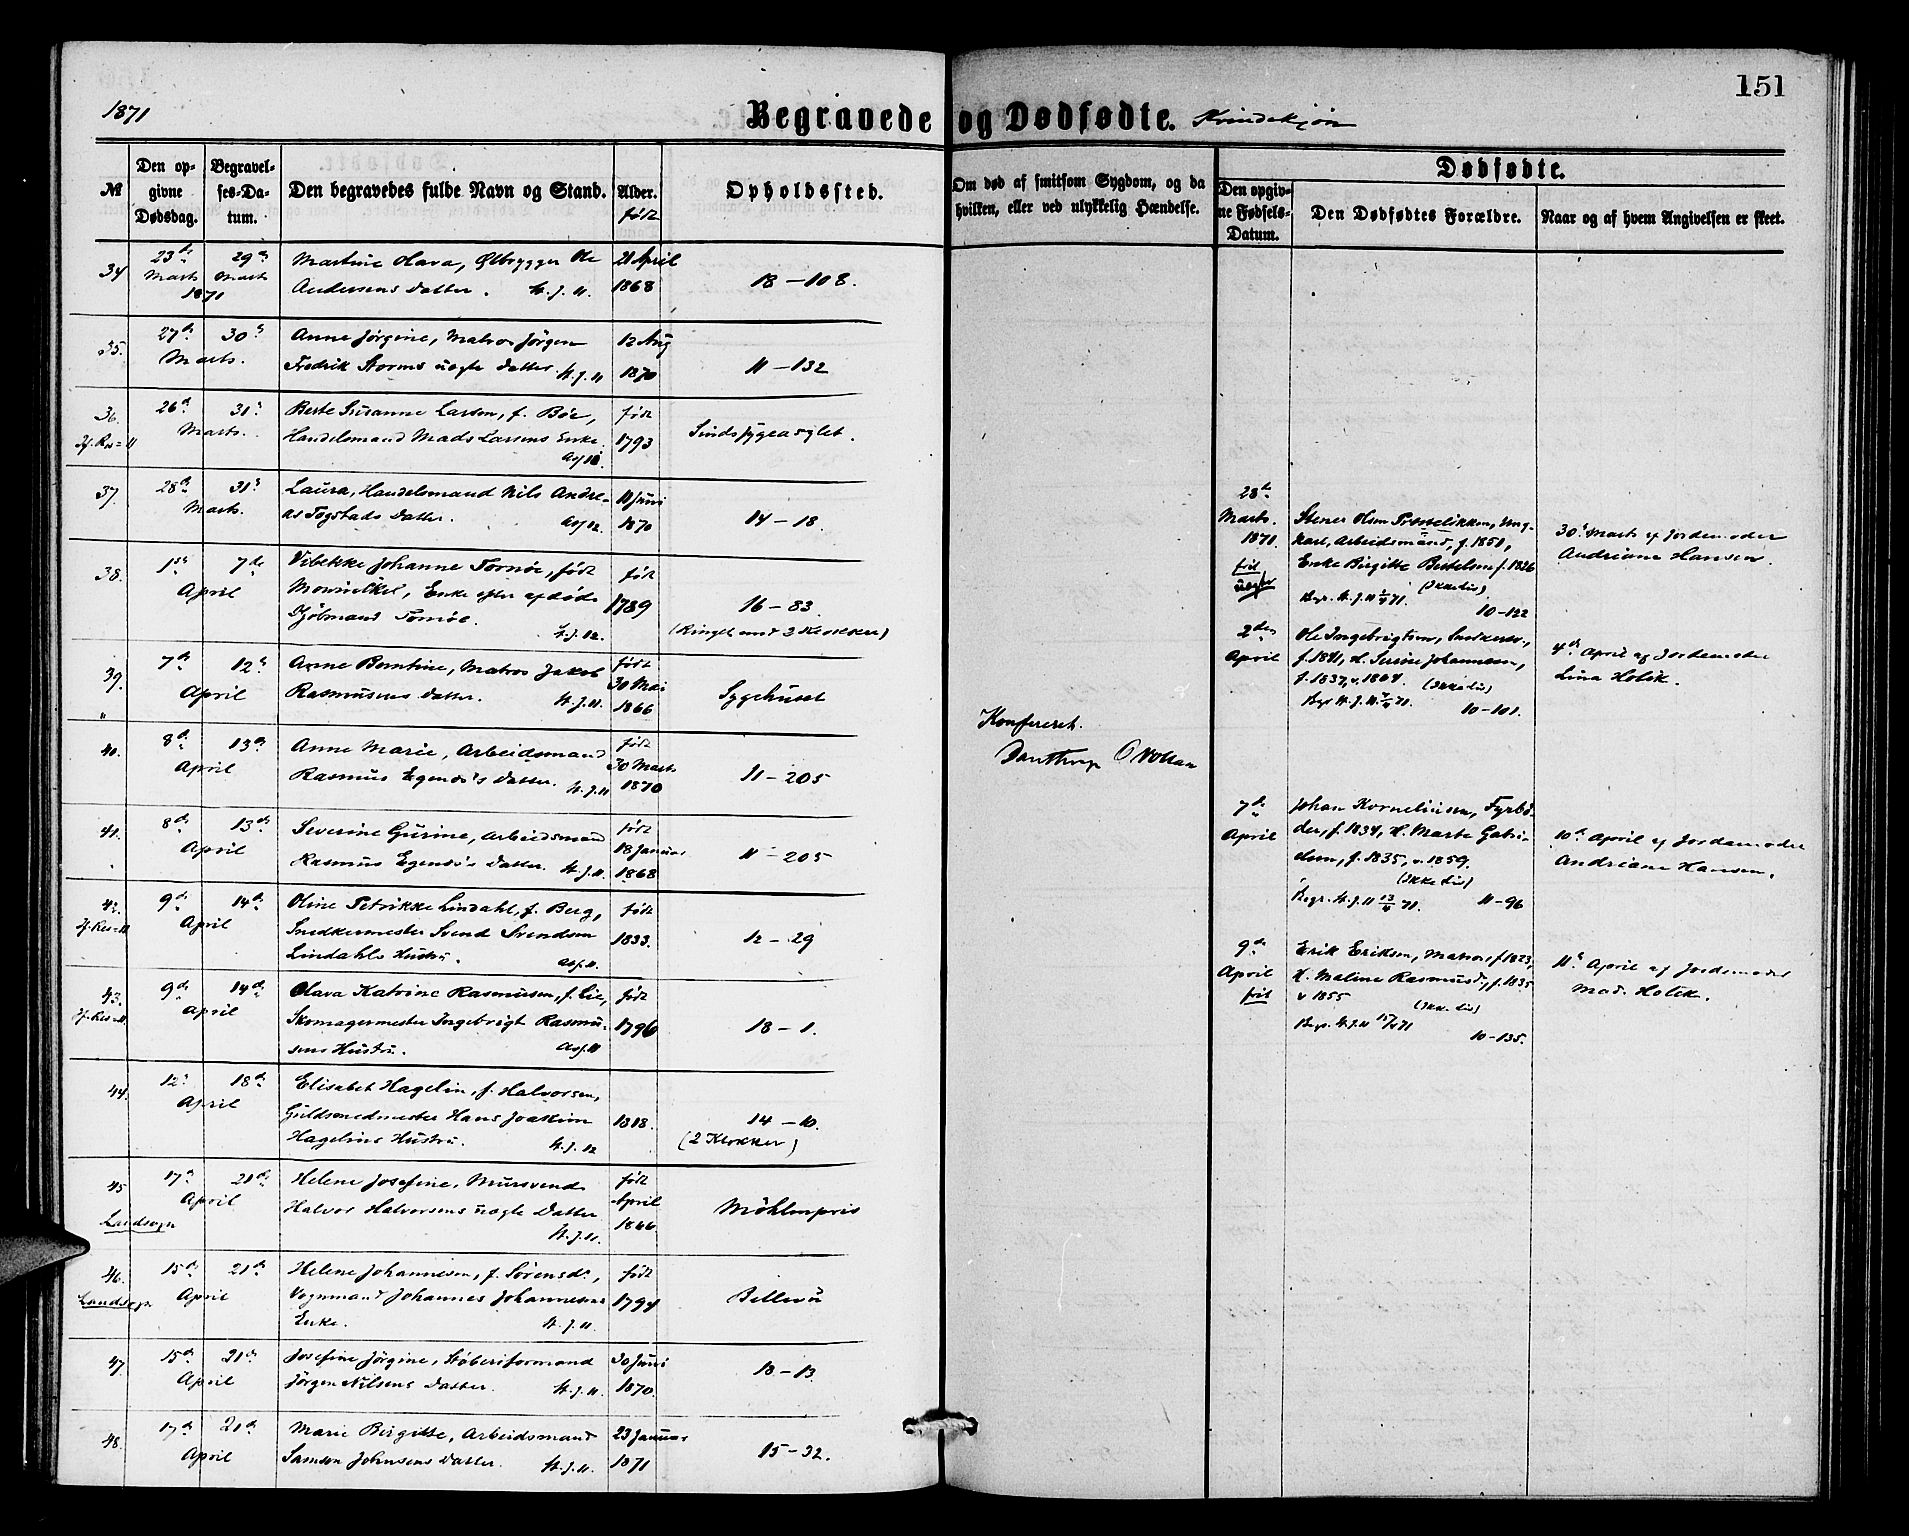 1871
Begravede og Dødfødte. Kvindekjøn
151
No.
Den op-
givne
Dødsdag.
Begravel-
ses-Da-
tum.
Den begravedes fulde Navn og Stand.
Alder.
født
Opholdssted.
Om død af smitsom Sygdom, og da
hvilken, eller ved ulykkelig Hændelse.
Dødfødte.
Den opgiv-
ne Fødsels-
Datum.
Den Dødfødtes Forældre.
Naar og af hvem Angivelsen er skeet.
34 23de Marts 1871 29de Marts
Martine Olava, Ølbrygger Ole
Andersens Datter. St. J. 11.
21 April
1868
18 – 108.
35. 27de 30te Marts.
Anne Jørgine, Matros Jørgen
Fredrik Storms uægte Datter. St. J. 11
12 Aug
1870
11 – 132
36. 26de 31te Marts.
Berte Susanne Larsen, f. Bøe,
Handelsmand Mads Larsens Enke.
født
1793
Sindssygeasylet.
37. 28de 31te Marts.
Laura, Handelsmand Nils Andre-
as Togstads Datter.
11 Juni
1870
14 – 18.
38. 1ste 7de April
Vibekke Johanne Tornøe, født
Enke efter afdøde
Kjøbmand Tornøe. St. J. 12.
født
1789
16 – 83.
(Ringet med 3 Klokker)
39. 7de 12te April
Anne Berntine, Matros Jakob
Rasmusens Datter. St. J. 11.
født
30 Mai
1866
Sygehuset
40. 8de 13de April
Anne Marie, Arbeidsmand
Rasmus Egenes's Datter. St. J. 11
født
30 Marts
1870
11 – 205
41. 8de 13de April
Severine Gurine, Arbeidsmand
Rasmus Egenes's Datter. St. J. 11.
født
18 Januar
1868
11 – 205
42. 9de 14de April
Oline Petrikke Lindahl, f. Berg,
Snedkermester Svend Svendsen
Lindahls Hustru.
født
1833.
12 – 29
43. 9de 14de April
Olava Katrine Rasmusen, f. Lie,
Skomagermester Ingebrigt Rasmu-
sens Hustru.
født
1796
18 – 1.
44. 12te 18de April
Elisabet Hagelin, f. Halvorsen,
Guldsmedmester Hans Joakim
Hagelins Hustru. St. J. 12
1818.
14 – 10.
(2 Klokker)
45 17de 20de April
Landsogn
Helene Josefine, Mursvend
Halvor Halvorsens uægte Datter
St. J. 11.
født
April
1866
Möhlenpris
46. 15de 21de April
Landsogn
Helene Johannesen, f. Sørensd.,
Vognmand Johannes Johannesens
Enke. St. J. 11.
født
1794
Bellevü
47. 15de 21de April
Josefine Jørgine, Støberiformand
Jørgen Nilsens Datter. St. J. 11.
30 Juni
1870.
18 – 13.
48. 17de 21de April
Marie Birgitte, Arbeidsmand
Samson Johnsens Datter. St. J. 11.
23 Januar
1871
15 – 32.
Konfereret.
Danthrop
28de
Marts.
1871.
Stener Olsen Ung-
karl, Arbeidsmand, f. 1851,
Enke Birgitte Bertelsen f. 1826
(Ikke Liv)
Begr. St. J. 11 71.
10 – 122
30te Marts af Jordemoder
Andriane Hansen.
2den
April
Ole Ingebrigtsen,
f. 1841, H. Serine Johannesen,
f. 1837, v. 1864. (Ikke Liv)
Begr St. J. 11. 71.
10 – 101.
4de April af Jordemoder
Lina Holck.
7de
April
Johan Korneliusen, Fyrbø-
der, f. 1834, H. Marte Gabri-
elsen, f. 1835, v. 1859.
(Ikke Liv)
Begr. St. J. 11 13/4 71. 11 – 96
10de April af Jordemoder
Andriane Hansen.
9de
April
Erik Eriksen, Matros, f 1823,
H. Maline Rasmusd., f. 1835
v 1855 (Ikke Liv)
Begr. St. J. 11 15/4 71
10 – 135.
11te April af Jordemoder
Mad. Holck.